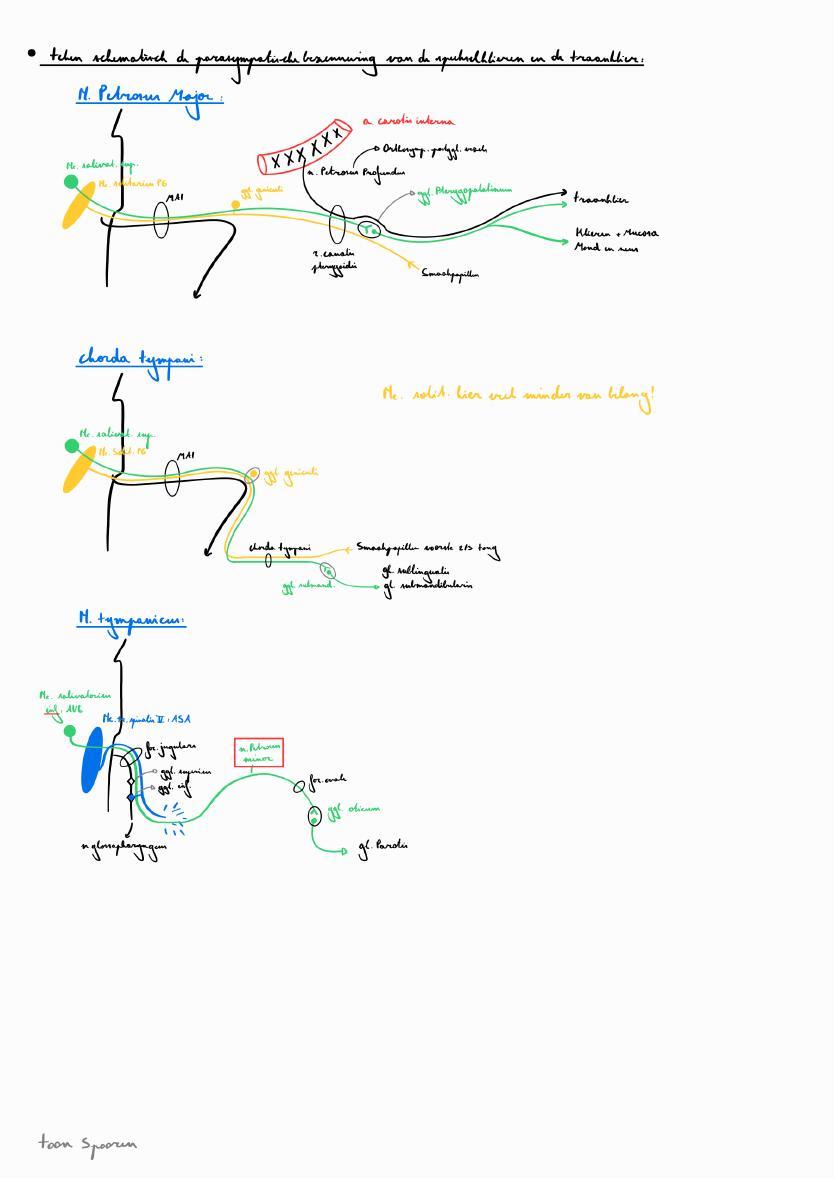 • teken schematisch de parasympatische bezenuwing van de speekselklieren en de traanklier:
N. Petrosus Major:
a carotis interna
Orthosymp. postggl. vezels
n. Petrosus Profundus
Nc. salivat. sup.
Nc. solitarius PG
MAI
ggl. geniculi
ggl. Pterygopalatinum
traanklier
Klieren + Mucosa
Mond en neus
r. canalis
pterygoidii
Smaakpapillen
chorda tympani:
Nc. solit. hier veel minder van belang!
Nc. salivat. sup.
Nc. Solit. PG
MAI
ggl. geniculi
chorda tympani
Smaakpapillen voorste 2/3 tong
gl. sublingualis
ggl submand.
gl. submandibularis
N. tympanicus:
Nc. salivatorius
inf. AVE
Nc. tr. spinalis V: ASA
for. jugulare
n. Petrosus
minor
ggl. superius
ggl. inf.
for. ovale
ggl. oticum
n glossopharyngeus
gl. Parotis
toon Spooren